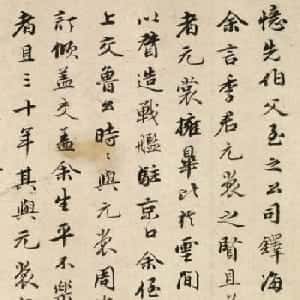 憶先伯父之公司鐸海
余言季君元裳之賢且
者元裳擁皋比於雲間
以督造戰艦駐京口余
上交魯公時時與元裳周
訂傾蓋交蓋余生平不樂
者且三十年其與元裳